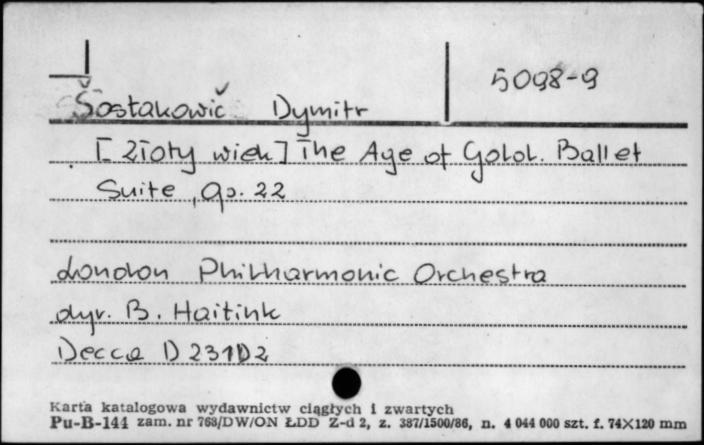 5098-9
Šostakowič Dymitr
[Złoty wiek] The Age of Gold. Ballet
Suite, Op. 22
London Philharmonic Orchestra
dyr. B. Haitink
Decca D 231D2
Karta katalogowa wydawnictw ciągłych i zwartych
Pu-B-144 zam. nr 768/DW/ON ŁDD Z-d 2, z. 387/1500/86, n. 4 044 000 szt. f. 74X120 mm